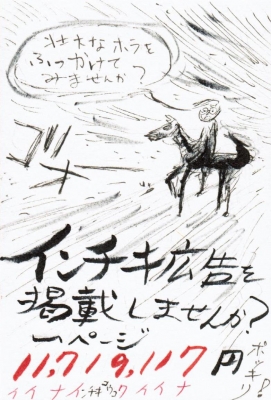 壮大なホラを
ふっかけて
みませんか?
ゴォー
インチキ広告を
掲載しませんか?
一ページ
11,719,117円
ポッキリ!
イイナインチキコウコクイイナ